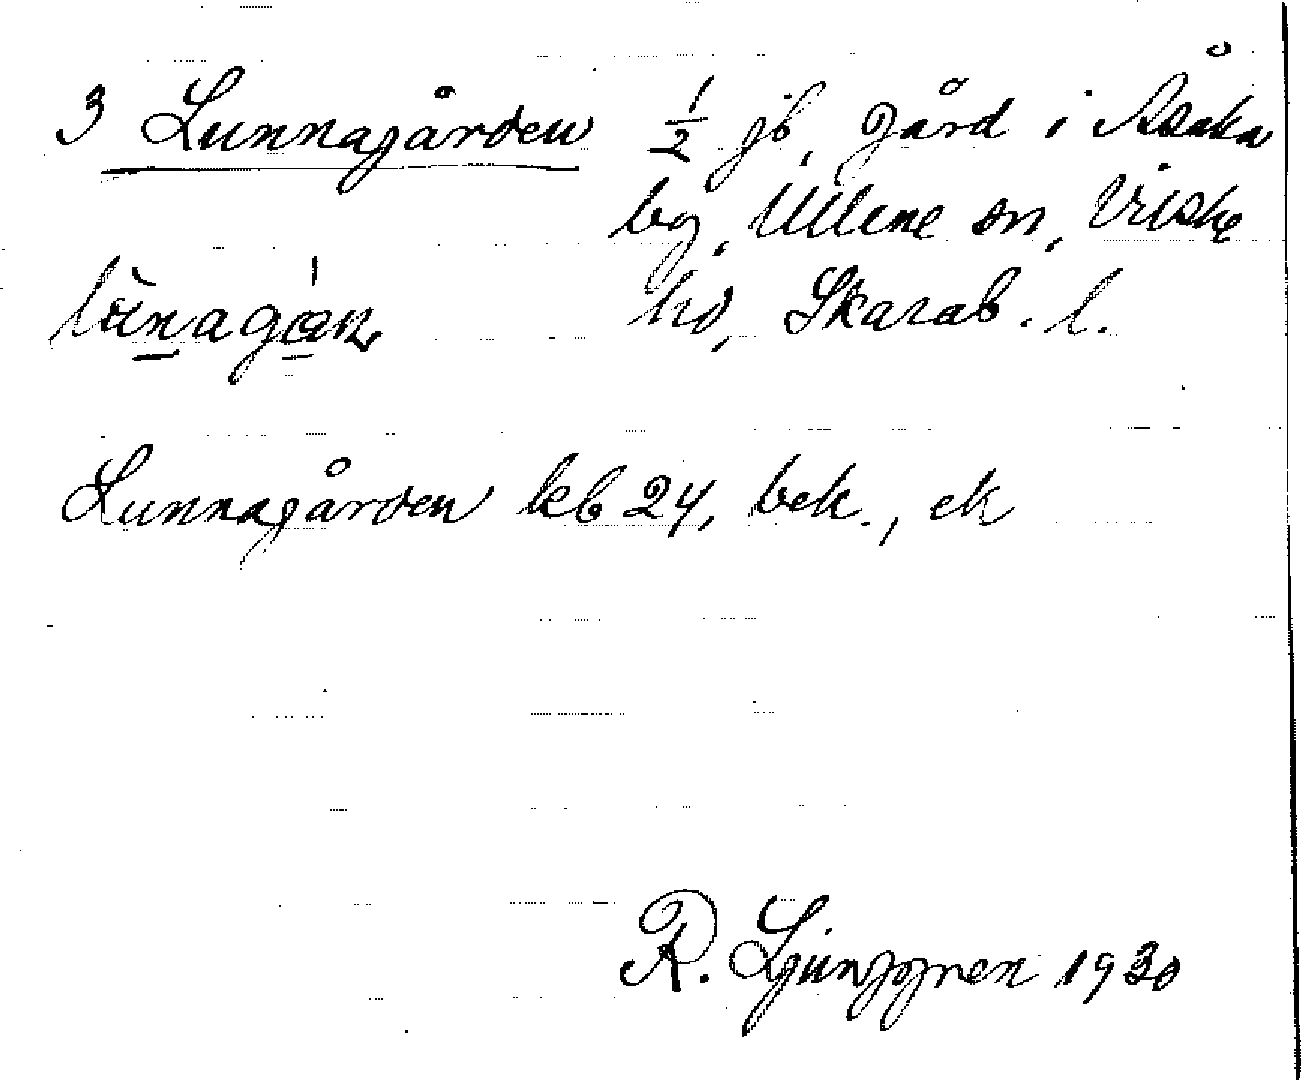 3 Lunnagården 1/2 jb, gård i Åsaka
by, Ullene sn, Vilske
hd, Skarab. l.
Lunnagården kb 24, bek., ek
R. Ljunggren 1930